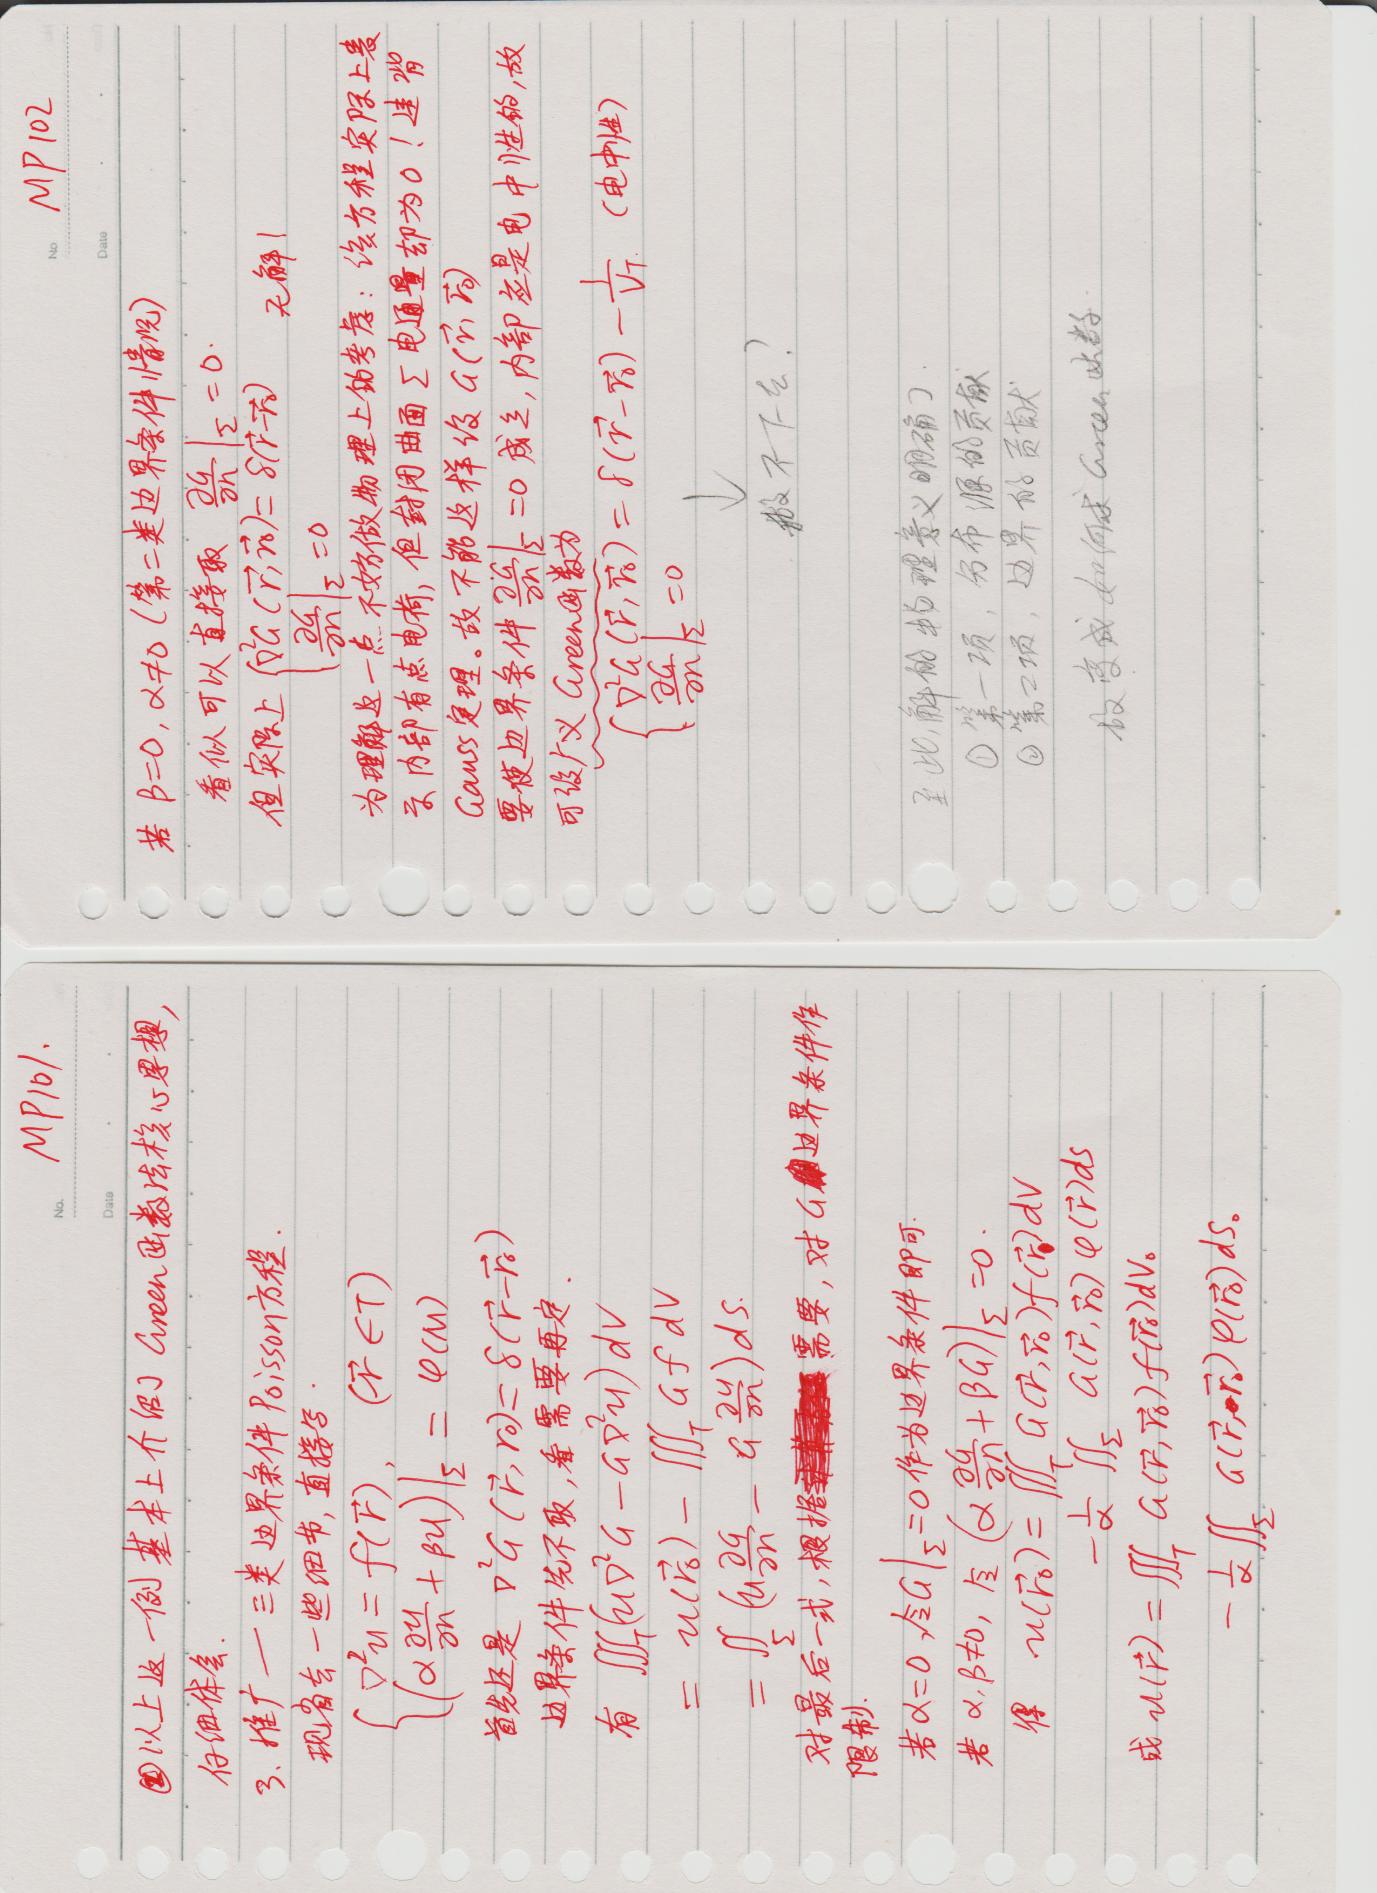 MP101.
No.
Date
②以上这一例基本上介绍了Green函数法核心思想,
仔细体会.
3. 推广—三类边界条件Poisson方程.
现省去一些细节,直接写.
∇²u = f(r⃗), (r⃗ ∈T)
(α ∂u/∂n + βu)|_Σ = φ(M)
首先还是 ∇²G(r⃗, r₀) = δ(r⃗-r⃗₀)
边界条件先不取,看需要再定.
有 ∭_T (u∇²G - G∇²u) dV
= u(r⃗₀) - ∭_T G f dV
= ∬_Σ (u ∂G/∂n - G ∂u/∂n) ds.
对最后一式,根据需要,对G边界条件作
限制.
若α=0,令G|_Σ=0作为边界条件即可.
若α,β≠0, 令 (α ∂G/∂n + βG)|_Σ = 0.
得 u(r⃗₀) = ∭_T G(r⃗, r⃗₀) f(r⃗) dV
- 1/α ∬_Σ G(r⃗, r⃗₀) φ(r⃗) ds
或 u(r⃗) = ∭_T G(r⃗, r⃗₀) f(r⃗₀) dV₀
- 1/α ∬_Σ G(r⃗, r⃗₀) φ(r⃗₀) ds₀
MP102
No
Date
若 β=0, α≠0 (第二类边界条件情况)
看似可以直接取 ∂G/∂n|_Σ = 0.
但实际上 ∇²G(r⃗, r⃗₀) = δ(r⃗-r⃗₀) 无解!
∂G/∂n|_Σ = 0
为理解这一点不妨做物理上的考虑: 该方程实际上表
示内部有点电荷, 但封闭曲面Σ电通量却为0! 违背
Gauss定理。故不能这样设 G(r⃗, r⃗₀)
要使边界条件 ∂G/∂n|_Σ = 0 成立, 内部应是电中性的, 故
可设广义Green函数为
∇²G(r⃗, r⃗₀) = δ(r⃗-r⃗₀) - 1/V_T. (电中性)
∂G/∂n|_Σ = 0
↓
做不下去?
至此,解的物理意义明确了.
① 第一项, 分布源的贡献
② 第二项, 边界的贡献
故变成如何求Green函数.